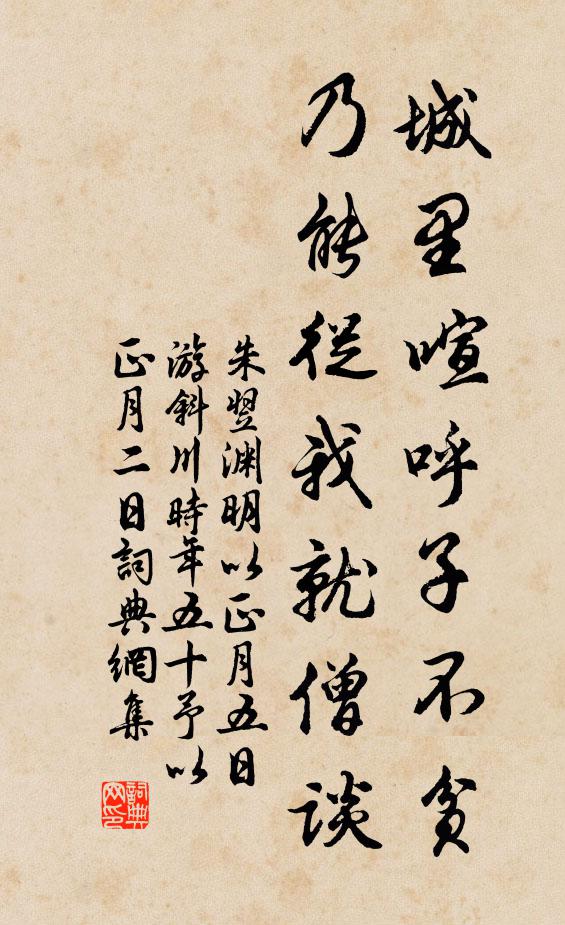 城里喧呼子不貪
乃能從我就僧談
朱翌渊明以正月五日
游斜川時年五十予以
正月二日詞典網集
詞典
网印